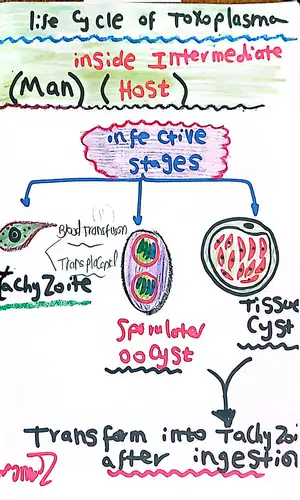 life Cycle of Toxoplasma
inside Intermediate
(Man) (Host)
infective
stages
Blood transfusion
Transplacental
tachyzoite
Sporulated
oocyst
Tissue
Cyst
Transform into Tachyzoi
after ingestion